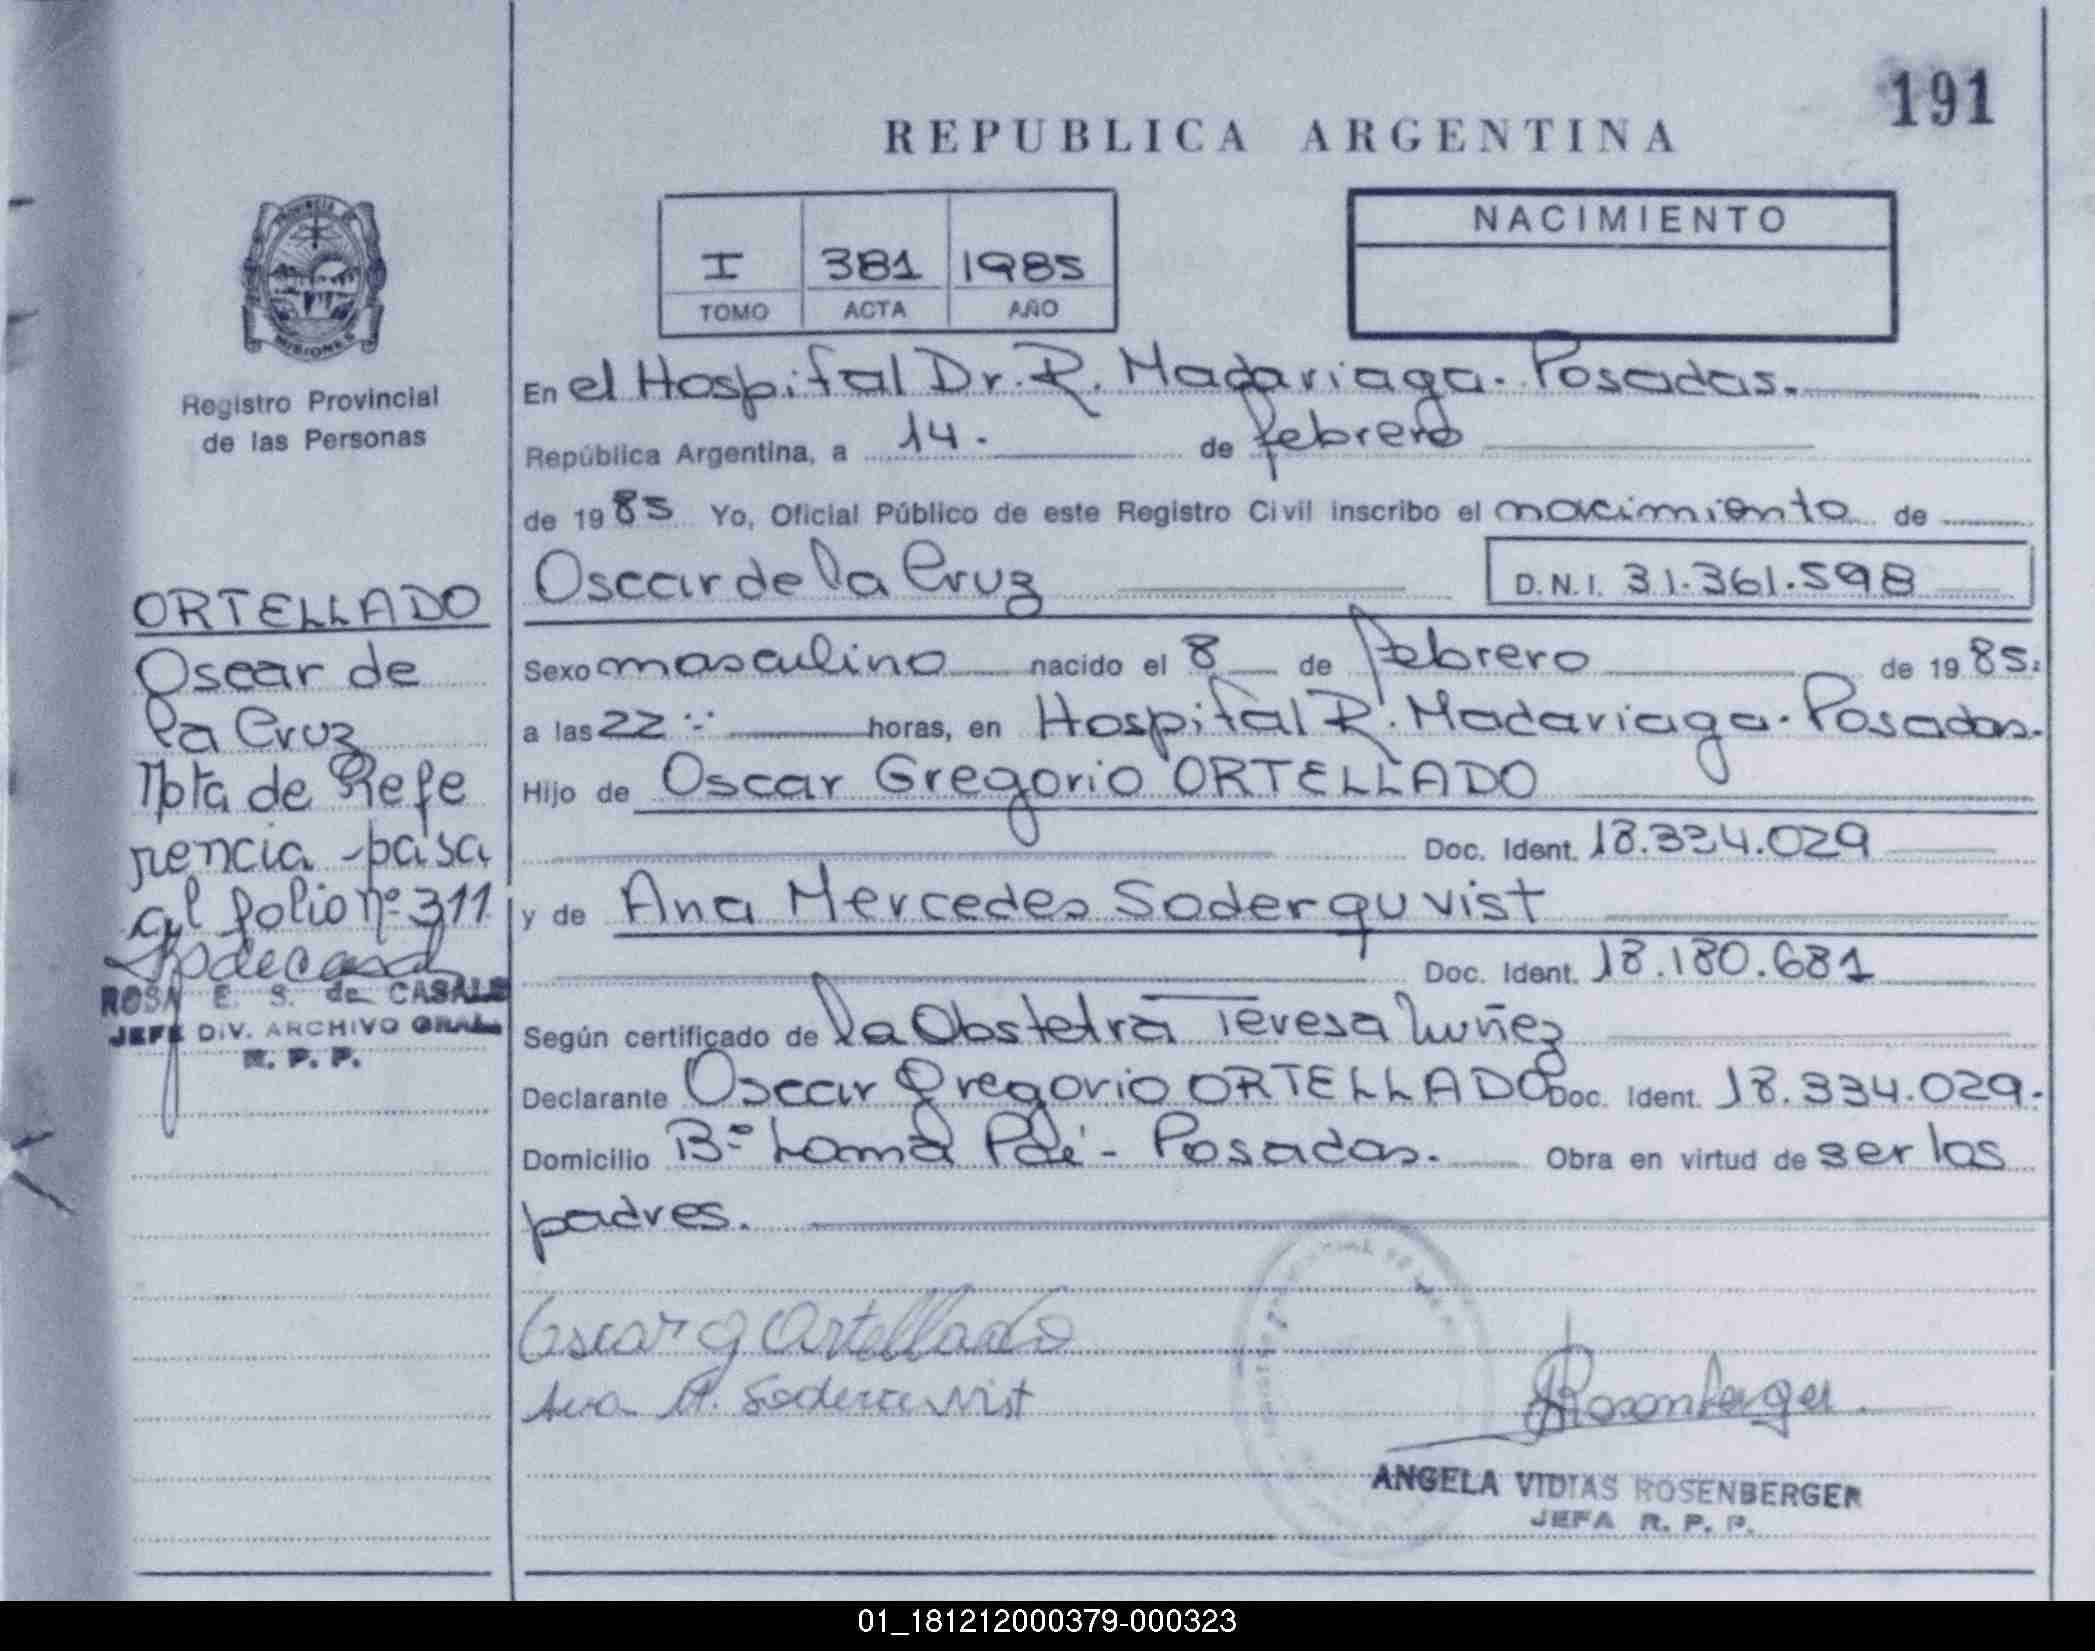 191
REPUBLICA ARGENTINA
PROVINCIA DE
MISIONES
Registro Provincial
de las Personas
I 381 1985
TOMO ACTA AÑO
NACIMIENTO
En el Hospital Dr. R. Madariaga. Posadas.
República Argentina, a 14. de febrero
de 1985 Yo, Oficial Público de este Registro Civil inscribo el nacimiento de
Oscar de la Cruz D.N.I. 31.361.598
Sexo masculino nacido el 8 de febrero de 1985.
a las 22 horas, en Hospital R. Madariaga. Posadas.
Hijo de Oscar Gregorio ORTELLADO
Doc. Ident. 18.334.029
y de Ana Mercedes Soderquvist
Doc. Ident. 18.180.681
Según certificado de la Obstetra Teresa Nuñez
Declarante Oscar Gregorio ORTELLADO Doc. Ident. 18.334.029.
Domicilio Bº Lomá Poí - Posadas. Obra en virtud de ser los
padres.
Oscar G Ortellado
Ana M. Soderquvist
Rosenberger
ANGELA VIDIAS ROSENBERGER
JEFA R. P. P.
ORTELLADO
Oscar de
la Cruz
Nota de Refe
rencia - pasa
al folio nº 311
ROSA E. S. de CASALS
JEFE DIV. ARCHIVO GRAL.
R. P. P.
01_181212000379-000323